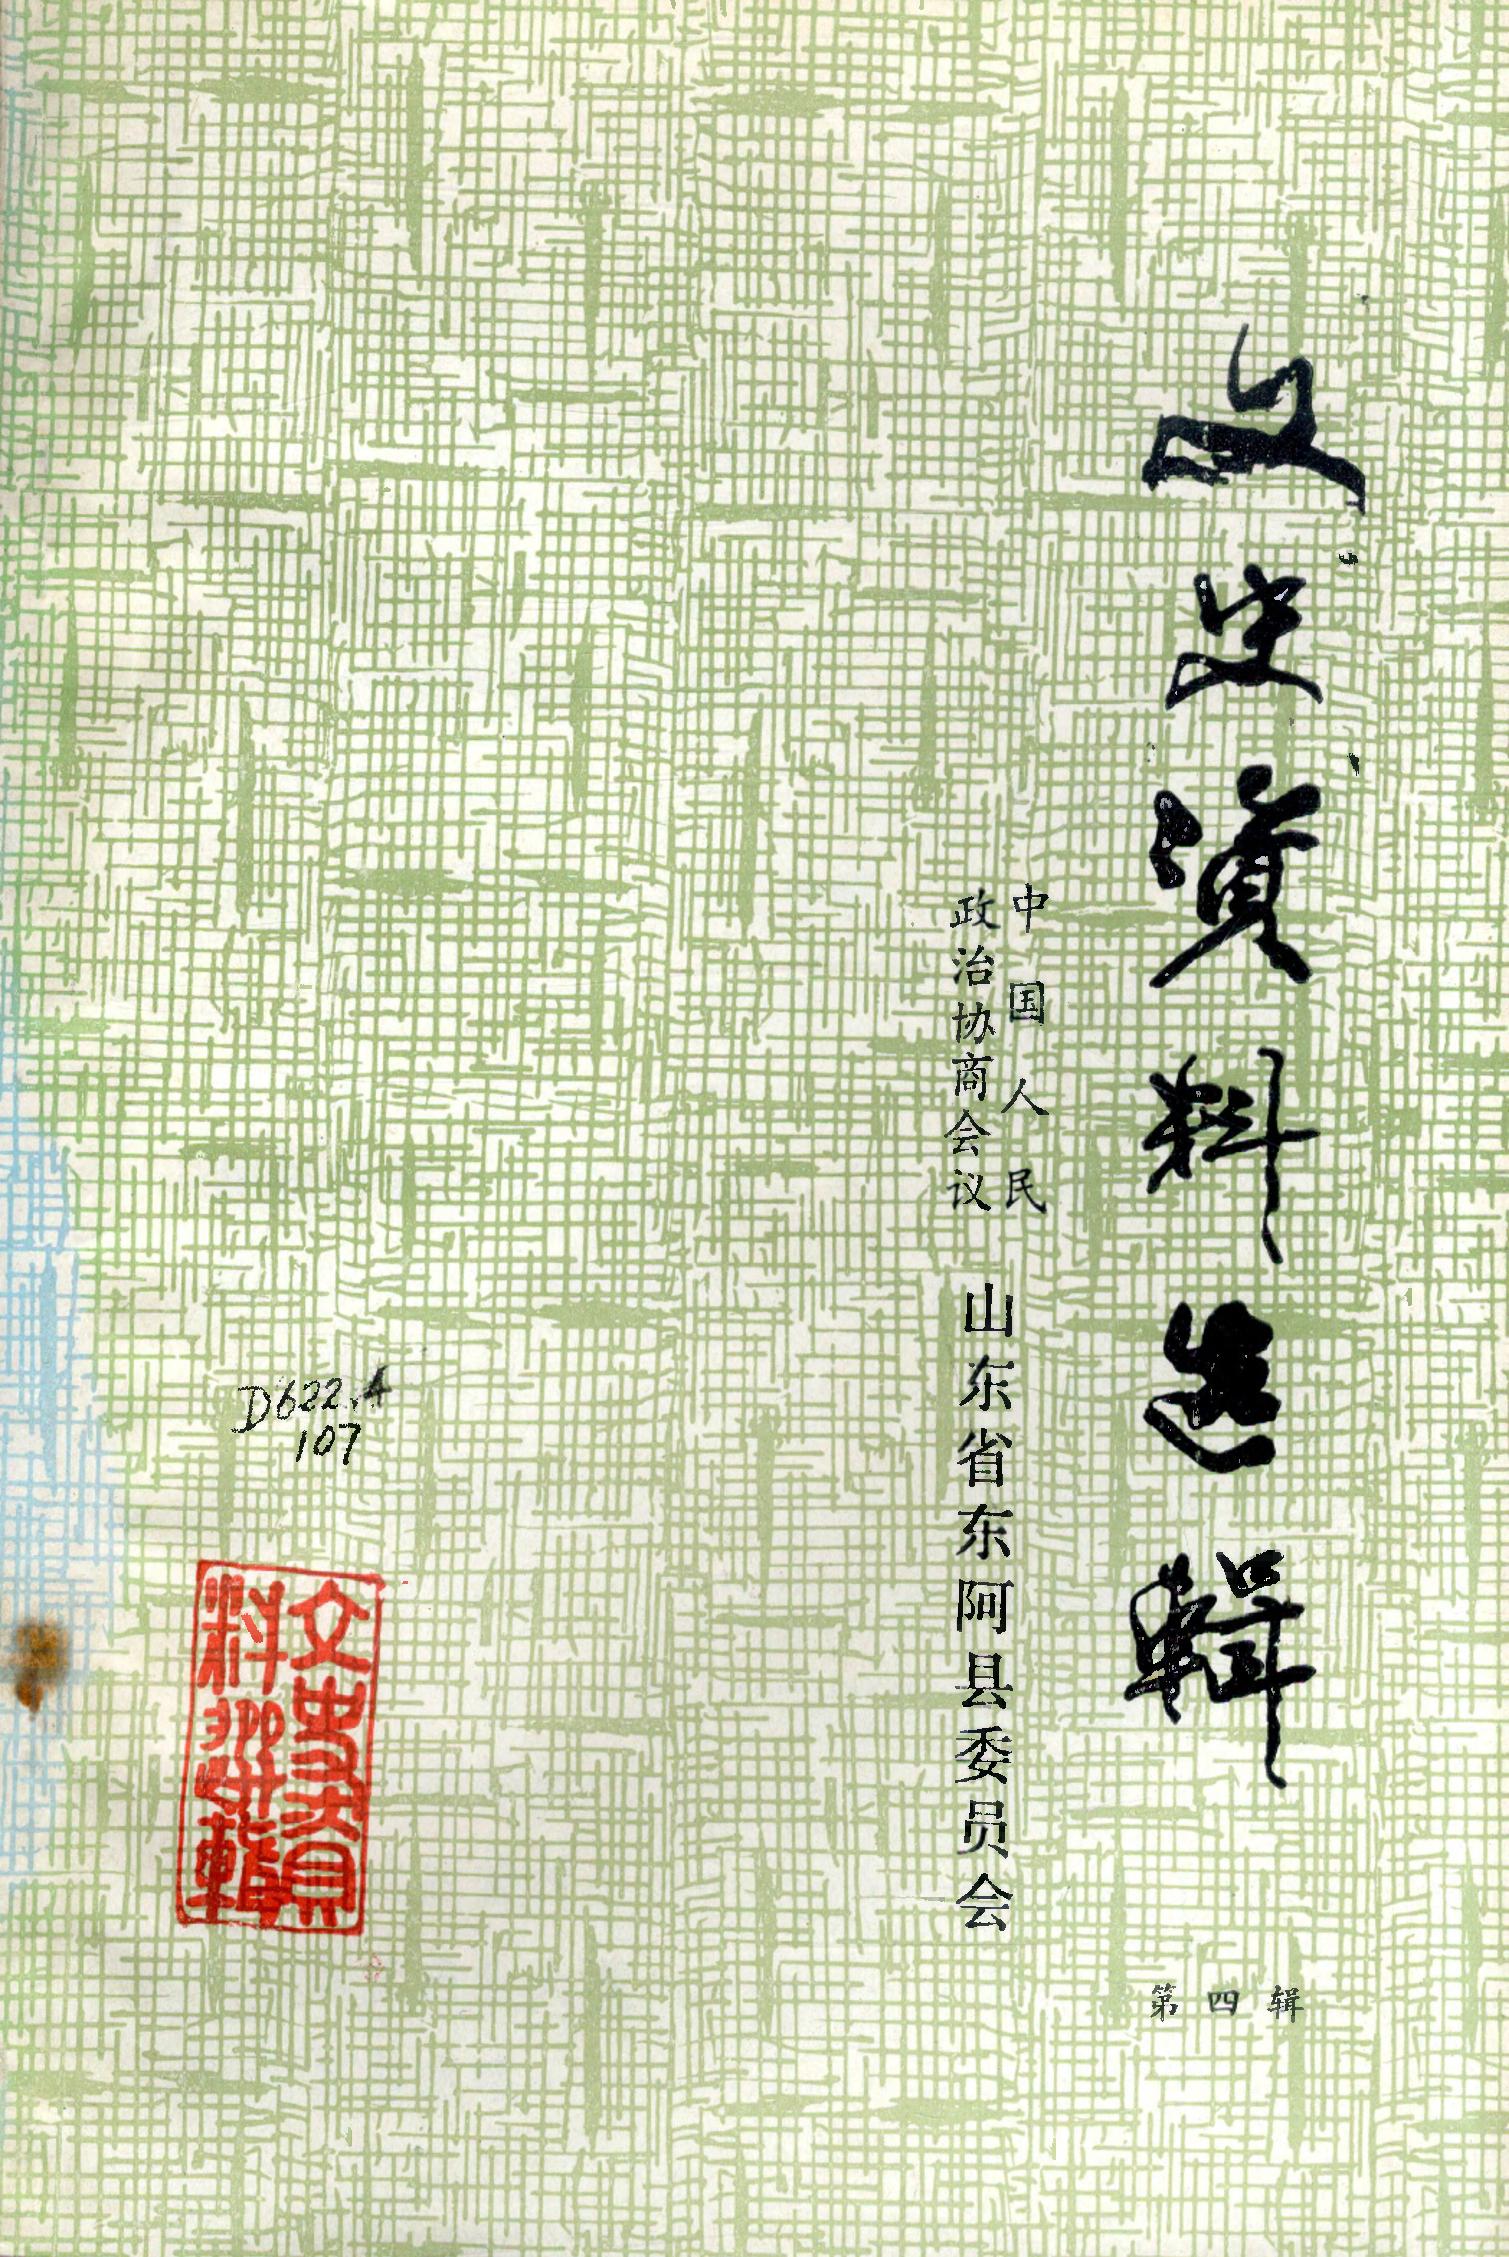 文史资料选辑
中国人民
政治协商会议
山东省东阿县委员会
第四辑
D622.4
107
文史資
料選輯